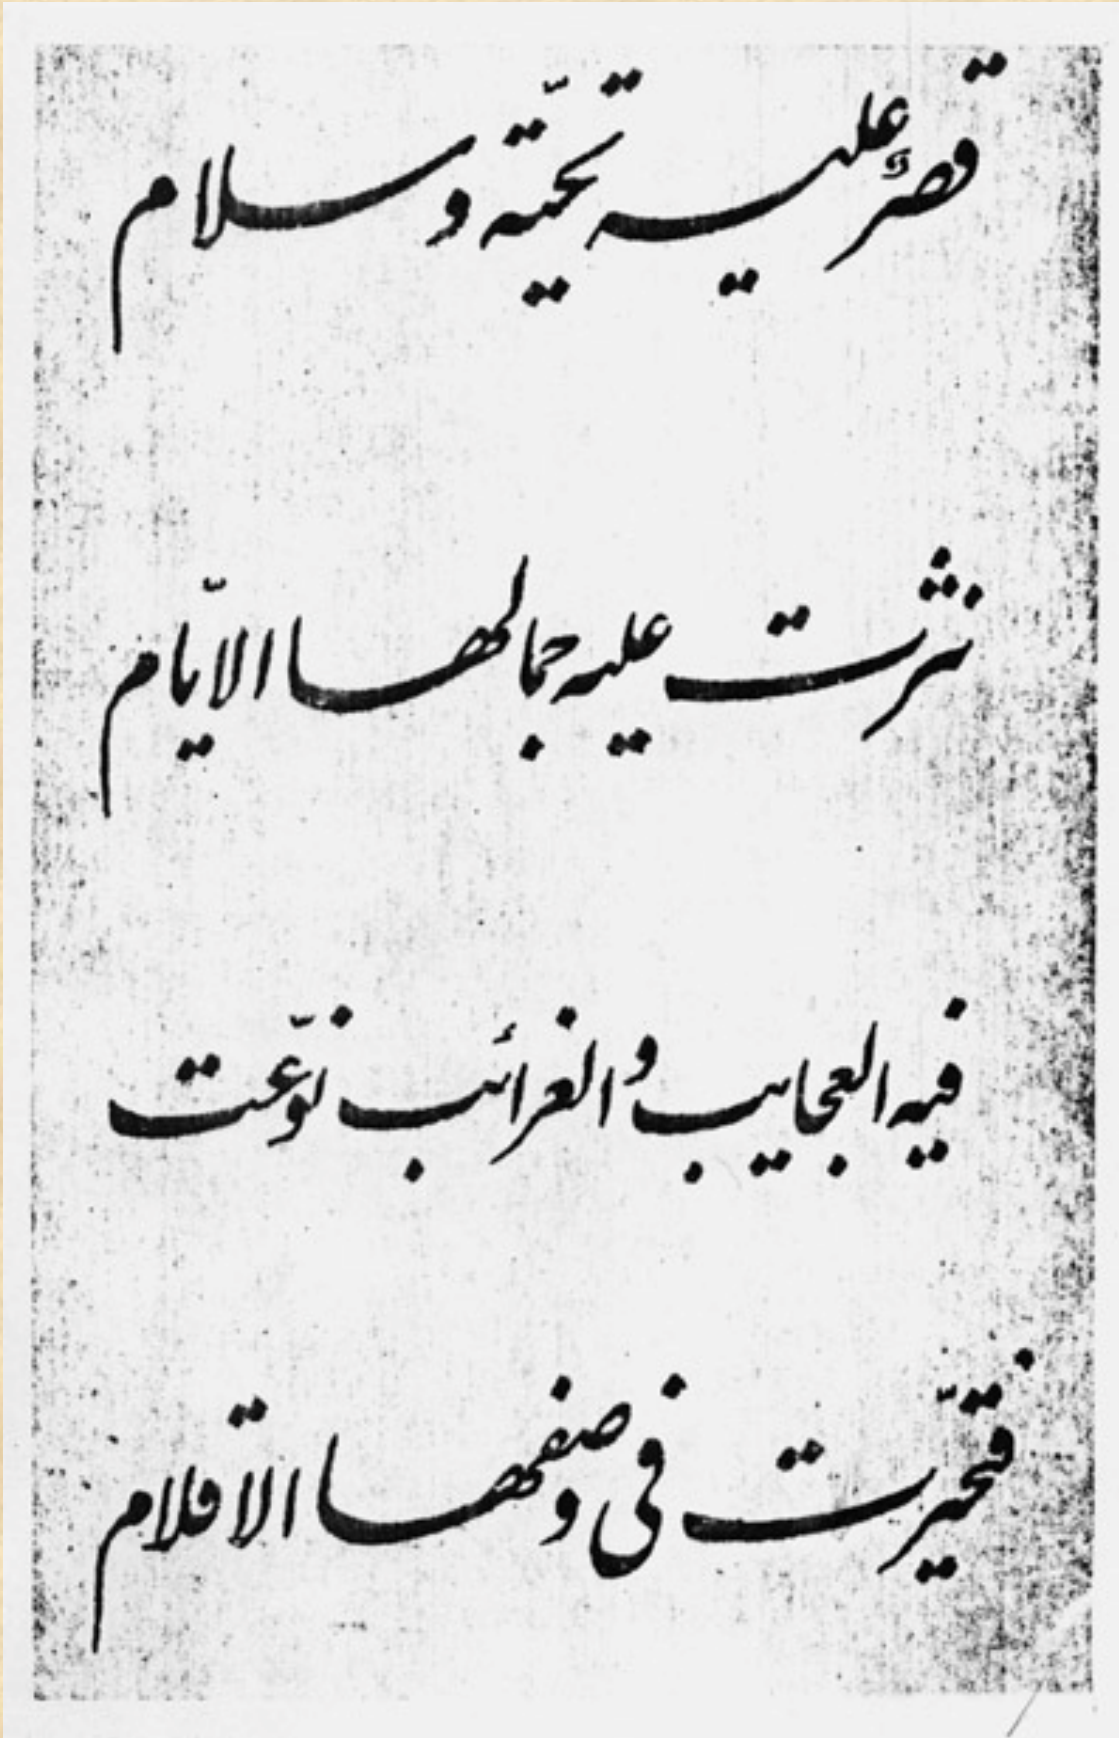 قصرٌ عليه تحيّة وسلام
نثرت عليه جمالها الايّام
فيه العجايب والغرائب نوّعت
فتحيّرت فى وصفها الاقلام